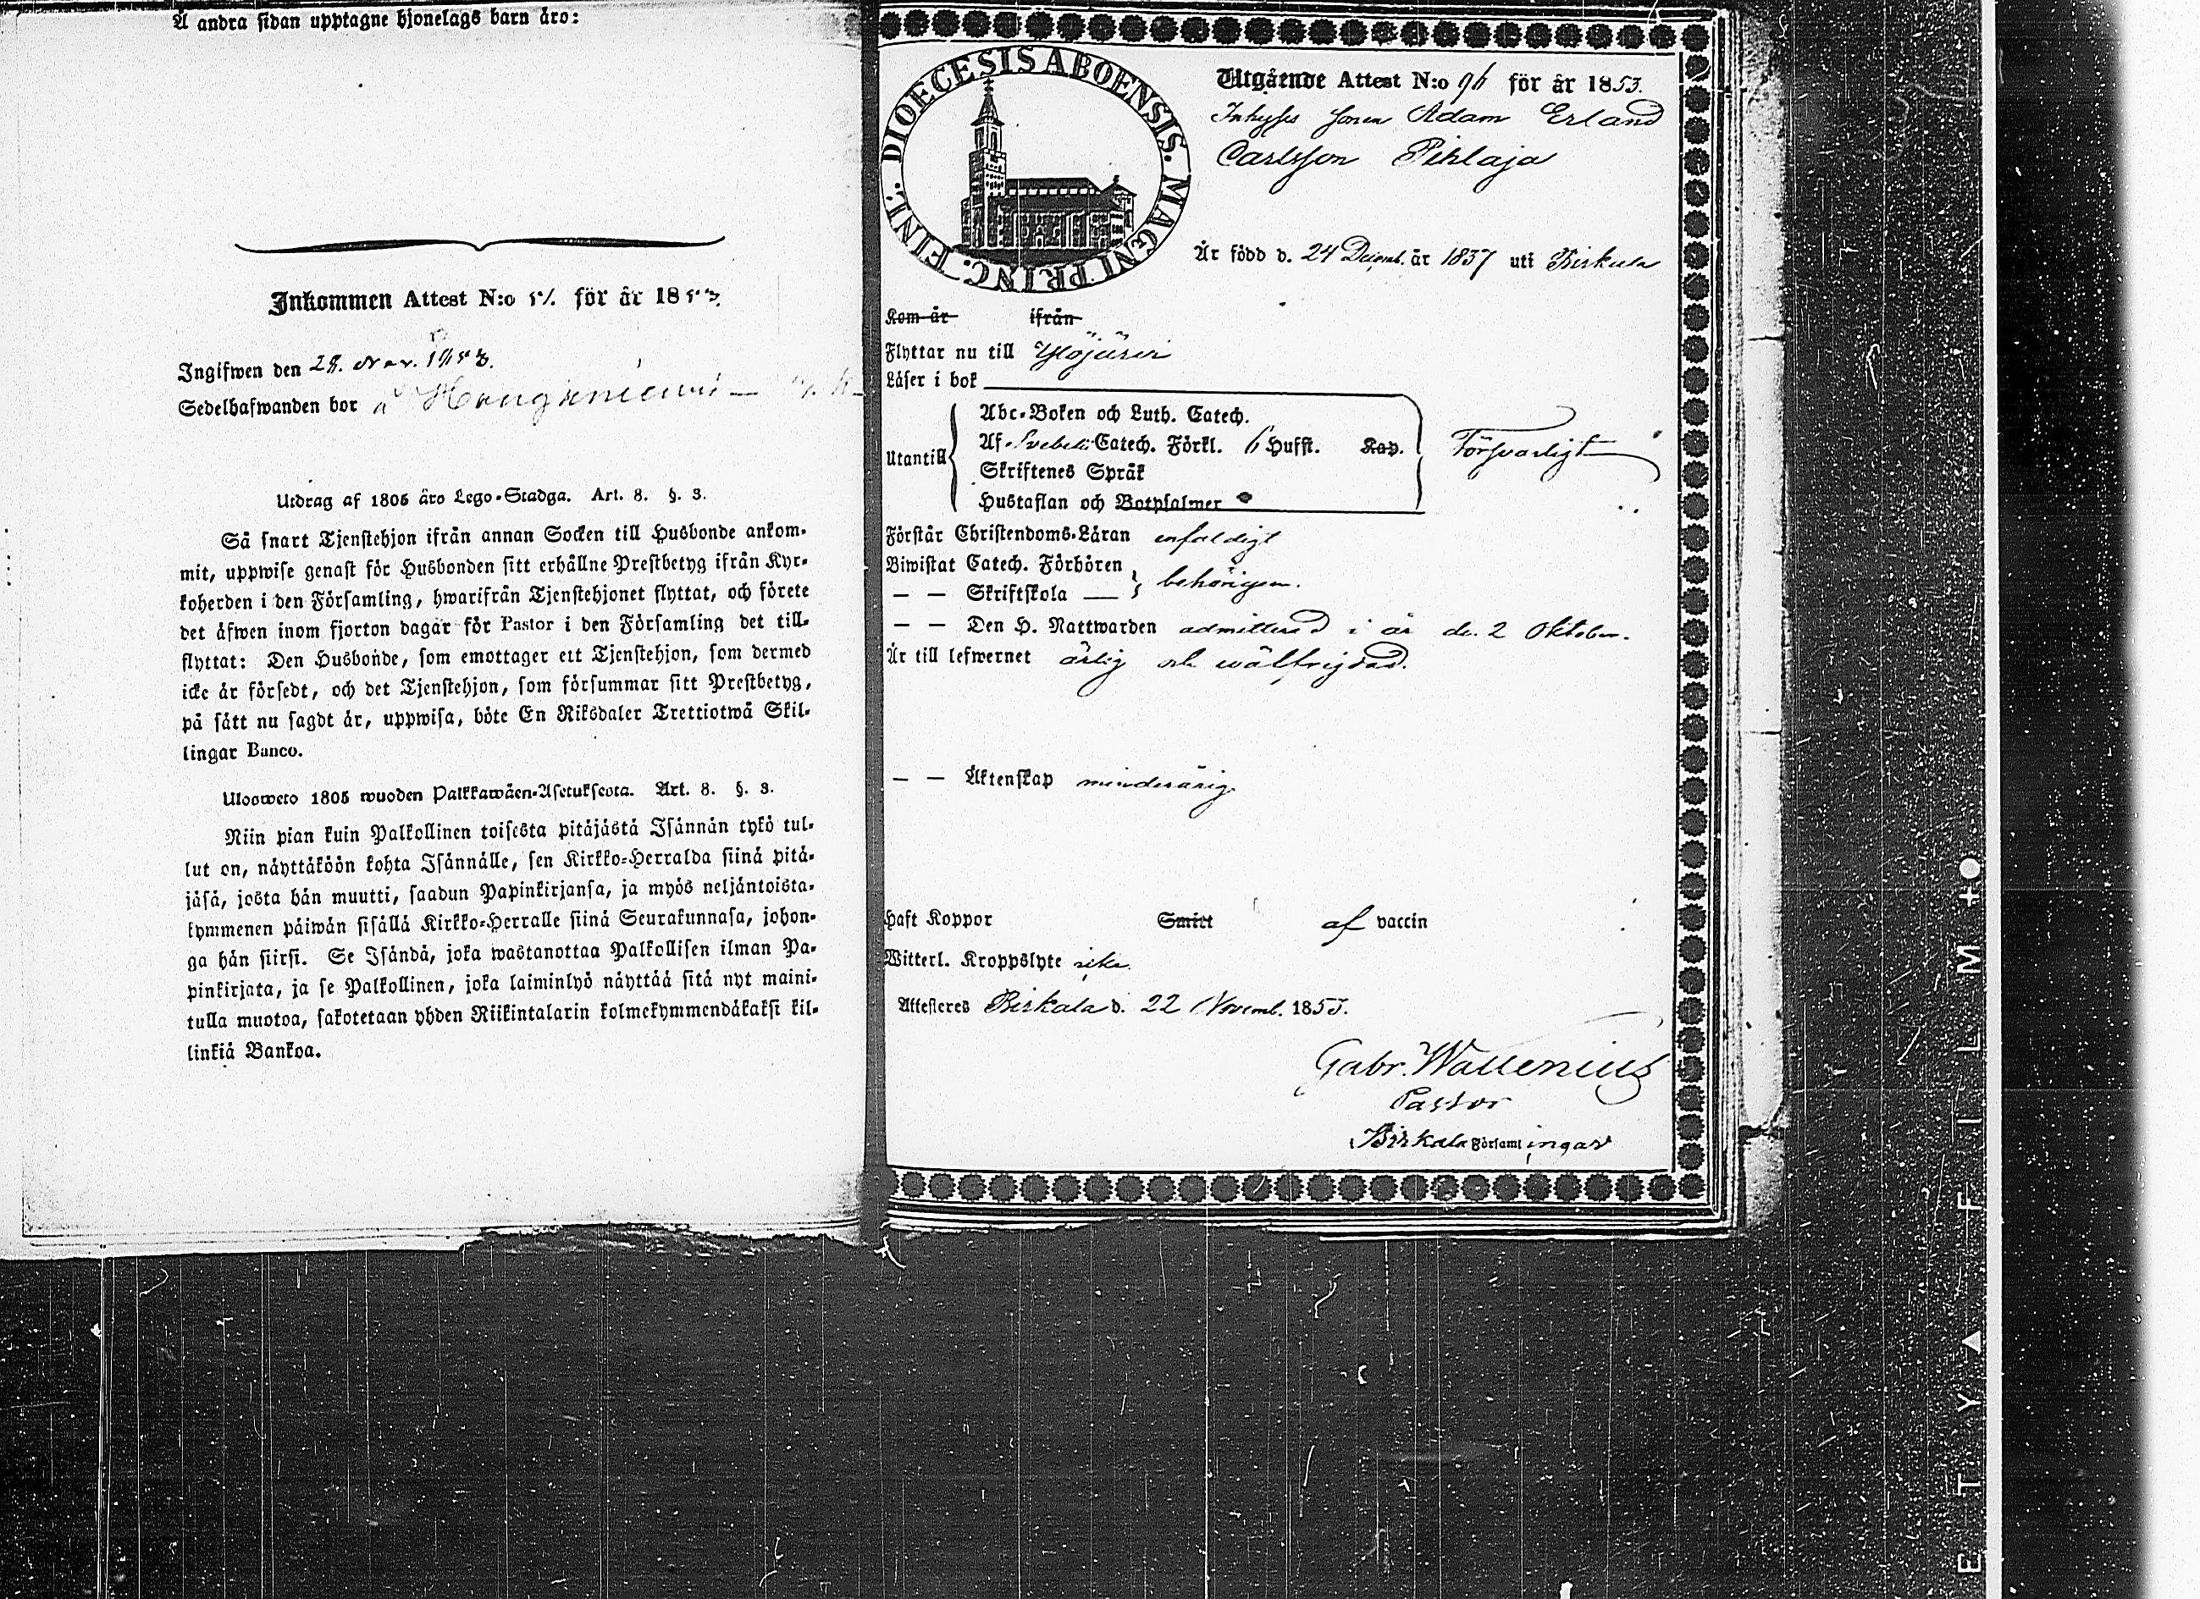 Å andra sidan upptagne hjonelags barn äro:
Inkommen Attest N:o för år 1853.
Ingifwen den 28. Nov. 1853.
Sedelhafwanden bor å
Utdrag af 1805 års Lego-Stadga. Art. 8. §. 3.
Så snart Tjenstehjon ifrån annan Socken till Husbonde ankom-
mit, uppwise genast för Husbonden sitt erhållne Prestbetyg ifrån Kyr-
koherden i den Församling, hwarifrån Tjenstehjonet flyttat, och förete
det äfwen inom fjorton dagar för Pastor i den Församling det till-
flyttat: Den Husbonde, som emottager ett Tjenstehjon, som dermed
icke är försedt, och det Tjenstehjon, som försummar sitt Prestbetyg,
på sätt nu sagdt är, uppwisa, böte En Riksdaler Trettiotwå Skil-
lingar Banco.
Ulosweto 1805 wuoden Palkkawäen-Asetuksesta. Art. 8. §. 3.
Niin pian kuin Palkollinen toisesta pitäjästä Isännän tykö tul-
lut on, näyttäköön kohta Isännälle, sen Kirkko-Herralda siinä pitä-
jäsä, josta hän muutti, saadun Papinkirjansa, ja myös neljäntoista-
kymmenen päiwän sisällä Kirkko-Herralle siinä Seurakunnasa, johon-
ga hän siirsi. Se Isändä, joka wastanottaa Palkollisen ilman Pa-
pinkirjata, ja se Palkollinen, joka laiminlyö näyttää sitä nyt maini-
tulla muotoa, sakotetaan yhden Riikintalarin kolmekymmendäkaksi kil-
linkiä Bankoa.
DIOECESIS ABOENSIS. MAGNI PRINC. FINL.
Utgående Attest N:o 96 för år 1853.
Inhyses sonen Adam Erland
Carlsson Pihlaja
Är född d. 24 Decemb. år 1837 uti Birkala
Kom år ifrån
Flyttar nu till Ylöjärvi
Läser i bok
Utantill
Abc-Boken och Luth. Catech.
Af Svebelii Catech. Förkl. 6 Hufst. Kap.
Skriftenes Språk
Hustaflan och Botpsalmer
Försvarligt
Förstår Christendoms-Läran enfaldigt
Biwistat Catech. Förhören
— — Skriftskola — behörigen.
— — Den H. Nattwarden admitterad i år d. 2 Oktober.
Är till lefwernet ärlig och wälfrejdad.
— — Äktenskap minderårig
Haft Koppor Smitt af vaccin
Witterl. Kroppslyte icke.
Attesteras Birkala d. 22 Novemb. 1853.
Gabr. Wallenius
Pastor
Birkala Församlingar
ETY ▲ FILM +